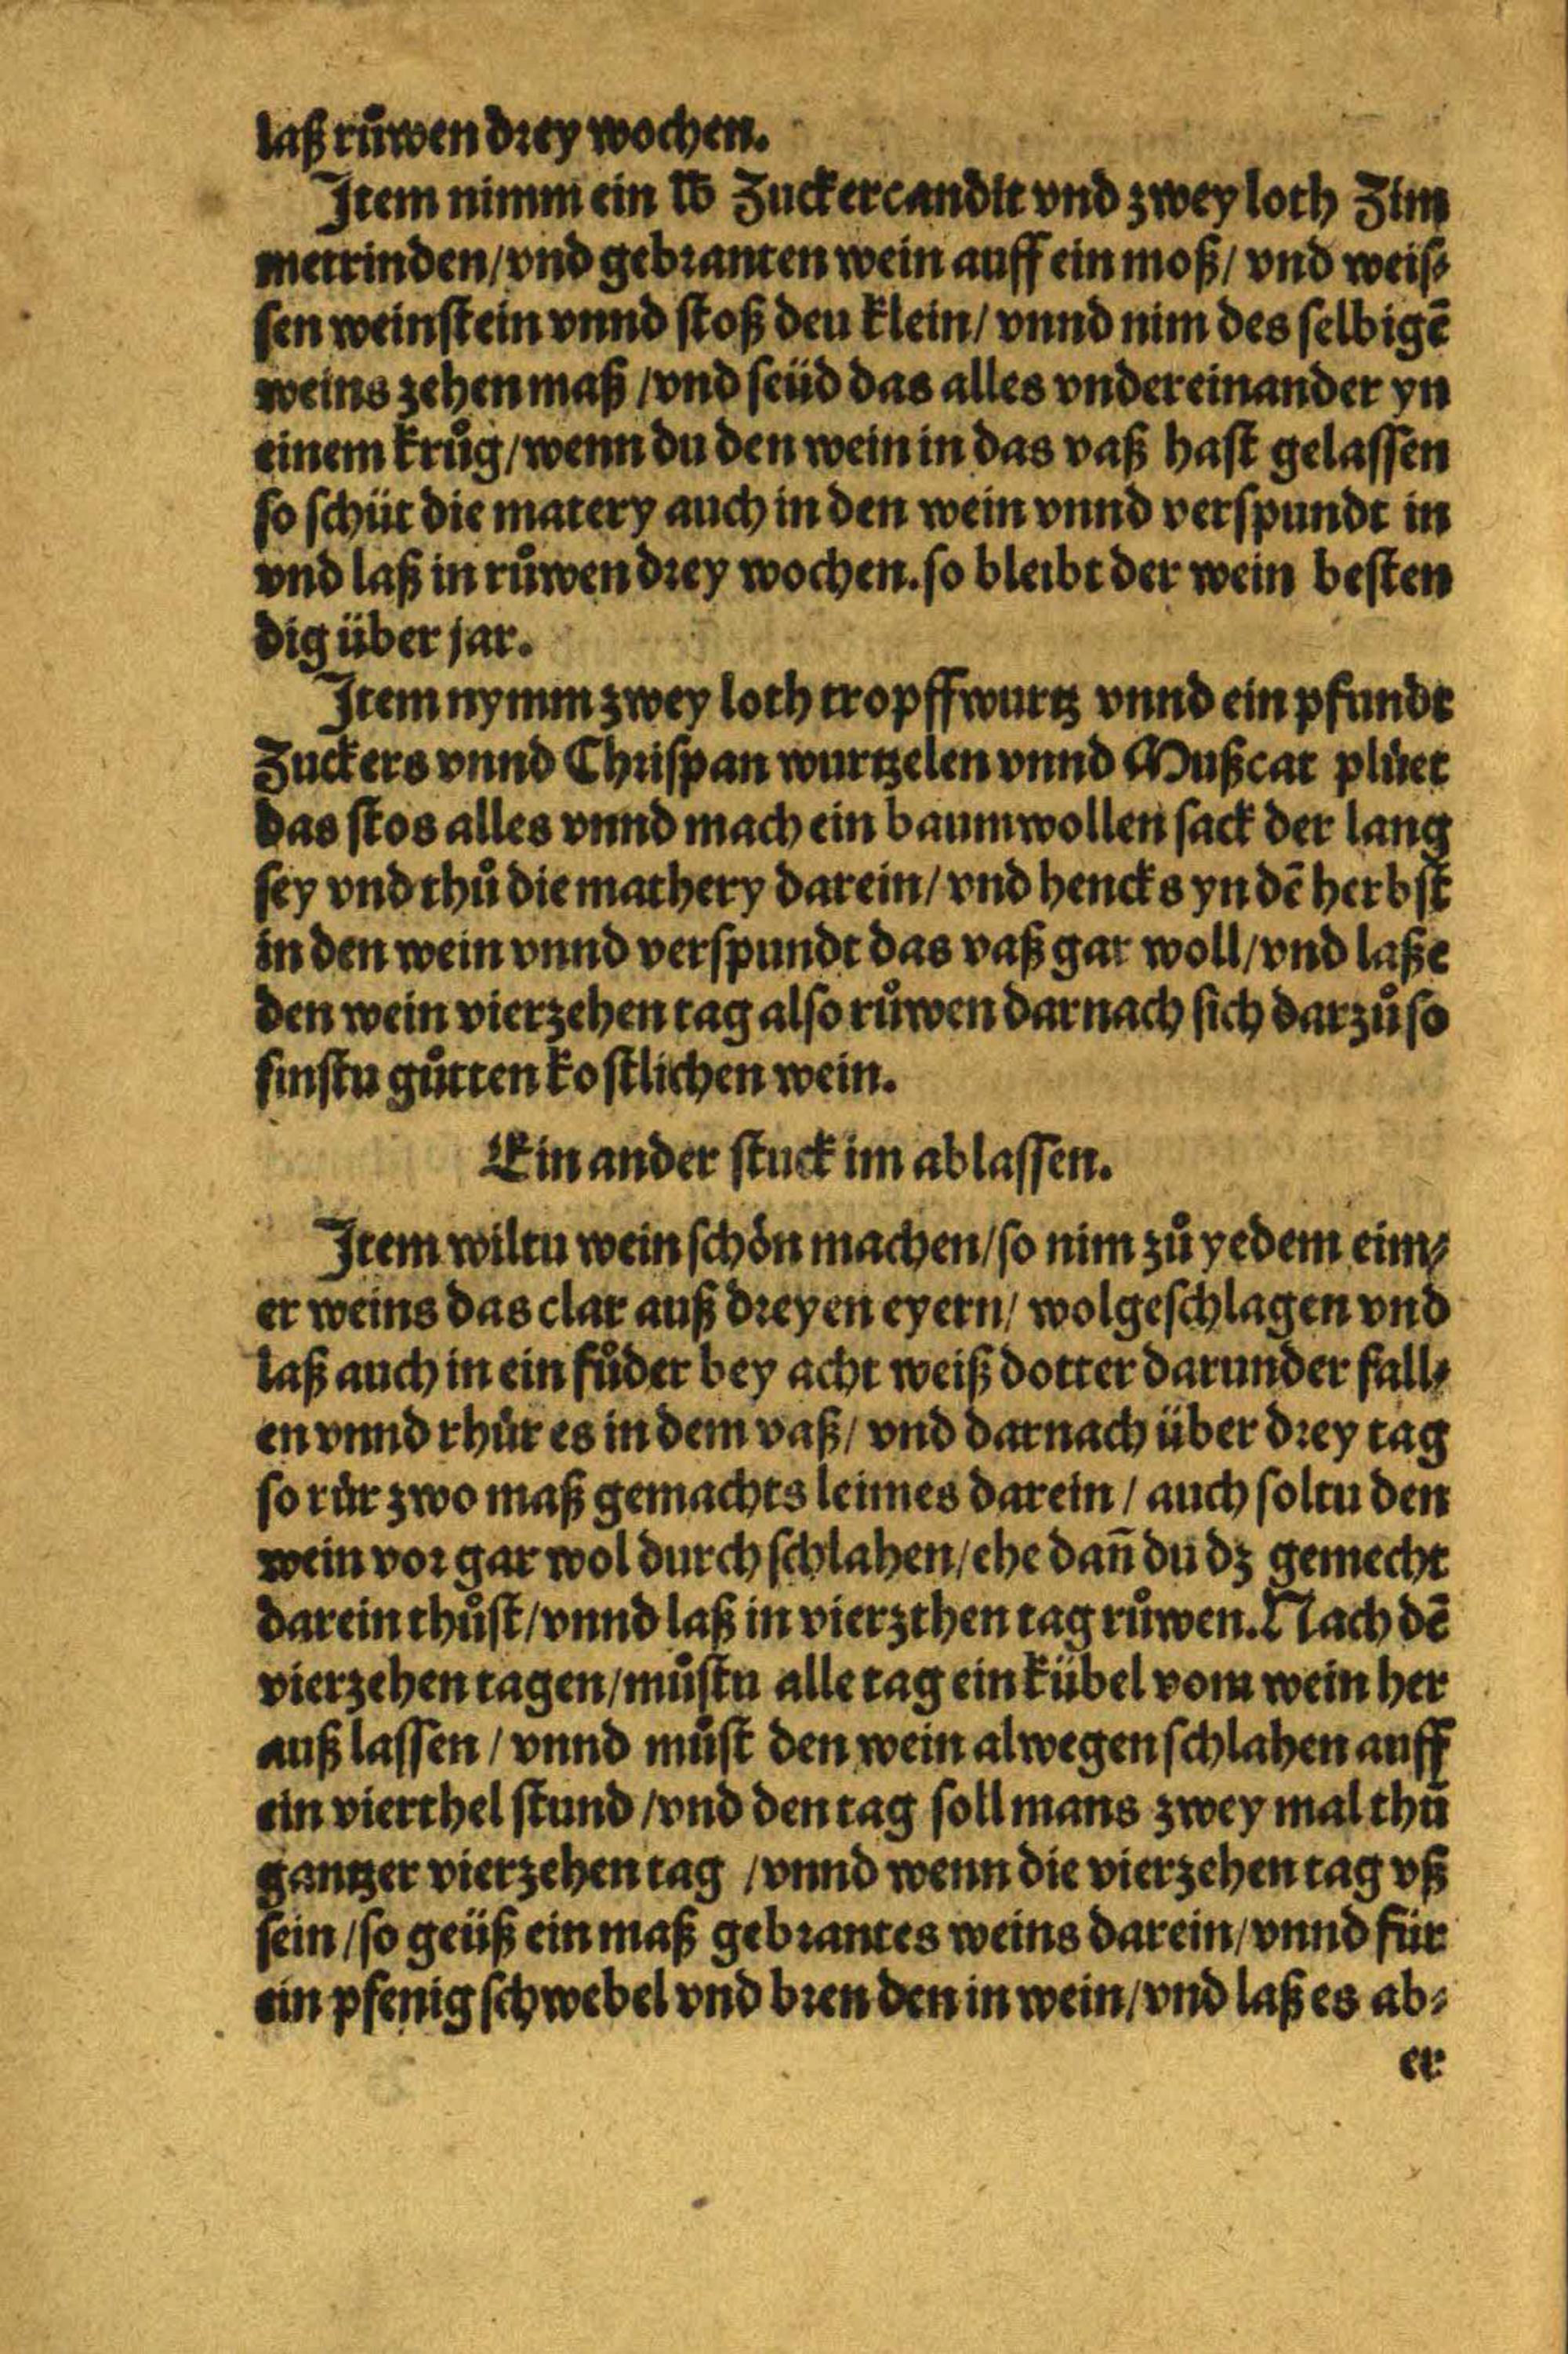 laß růwen drey wochen.
Item nimm ein ℔ Zuckercandit vnd zwey loth Zim
metrinden/vnd gebranten wein auff ein moß/ vnd weis⸗
sen weinstein vnnd stoß deu klein/ vnnd nim des selbigē
weins zehen maß /vnd seüd das alles vndereinander yn
einem krůg/wenn du den wein in das vaß hast gelassen
so schüt die matery auch in den wein vnnd verspundt in
vnd laß in růwen drey wochen. so bleibt der wein besten
dig über jar.
Item nymm zwey loth tropffwurtz vnnd ein pfundt
Zuckers vnnd Chrispan wurtzelen vnnd Mußcat plůet
das stos alles vnnd mach ein baumwollen sack der lang
sey vnd thů die mathery darein/ vnd hencks yn dē herbst
in den wein vnnd verspundt das vaß gar woll/vnd laße
den wein vierzehen tag also růwen darnach sich darzů so
finstu gůtten kostlichen wein.
Ein ander stuck im ablassen.
Item wiltu wein schön machen/so nim zů yedem eim⸗
er weins das clar auß dreyen eyern/ wolgeschlagen vnd
laß auch in ein fůder bey acht weiß dotter darunder fall⸗
en vnnd rhůr es in dem vaß/ vnd darnach über drey tag
so růr zwo maß gemachts leimes darein / auch soltu den
wein vor gar wol durch schlahen/ehe dañ du dz gemecht
darein thůst/vnnd laß in vierzthen tag růwen. Nach dē
vierzehen tagen/můstu alle tag ein kübel vom wein her
auß lassen / vnnd můst den wein alwegen schlahen auff
ein vierthel stund /vnd den tag soll mans zwey mal thů
gantzer vierzehen tag /vnnd wenn die vierzehen tag vß
sein /so geüß ein maß gebrantes weins darein/vnnd für
ein pfenig schwebel vnd bren den in wein/vnd laß es ab⸗
er